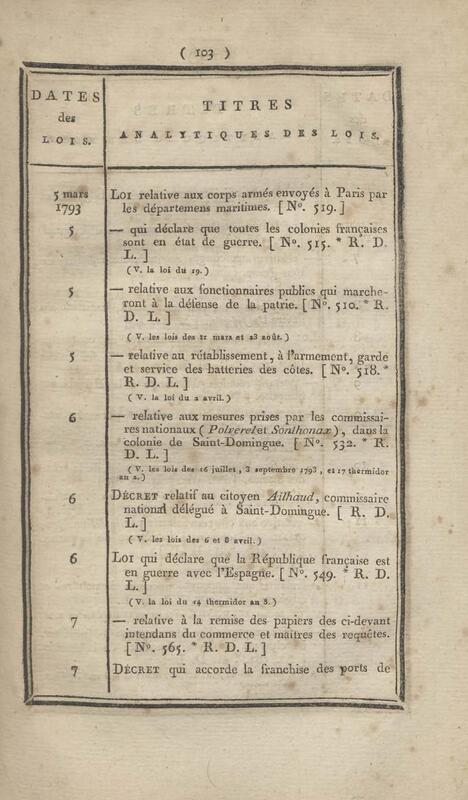 ( 103 )
DATES
des
LOIS.
TITRES
ANALYTIQUES DES LOIS.
5 mars
1793
LOI relative aux corps armés envoyés à Paris par
les départemens maritimes. [ Nº. 519. ]
5
— qui déclare que toutes les colonies françaises
sont en état de guerre. [ Nº. 515. * R. D.
L. ]
( V. la loi du 19. )
5
— relative aux fonctionnaires publics qui marche-
ront à la défense de la patrie. [ Nº. 510. * R.
D. L. ]
( V. les lois des 21 mars et 23 août. )
5
— relative au rétablissement, à l'armement, garde
et service des batteries des côtes. [ Nº. 518. *
R. D. L. ]
( V. la loi du 2 avril. )
6
— relative aux mesures prises par les commissai-
res nationaux ( Polverel et Sonthonax ), dans la
colonie de Saint-Domingue. [ Nº. 532. * R.
D. L. ]
( V. les lois des 16 juillet, 3 septembre 1793, et 17 thermidor
an 2. )
6
DÉCRET relatif au citoyen Ailhaud, commissaire
national délégué à Saint-Domingue. [ R. D.
L. ]
( V. les lois des 6 et 8 avril. )
6
LOI qui déclare que la République française est
en guerre avec l'Espagne. [ Nº. 549. * R. D.
L. ]
( V. la loi du 14 thermidor an 3. )
7
— relative à la remise des papiers des ci-devant
intendans du commerce et maîtres des requêtes.
[ Nº. 565. * R. D. L. ]
7
DÉCRET qui accorde la franchise des ports de